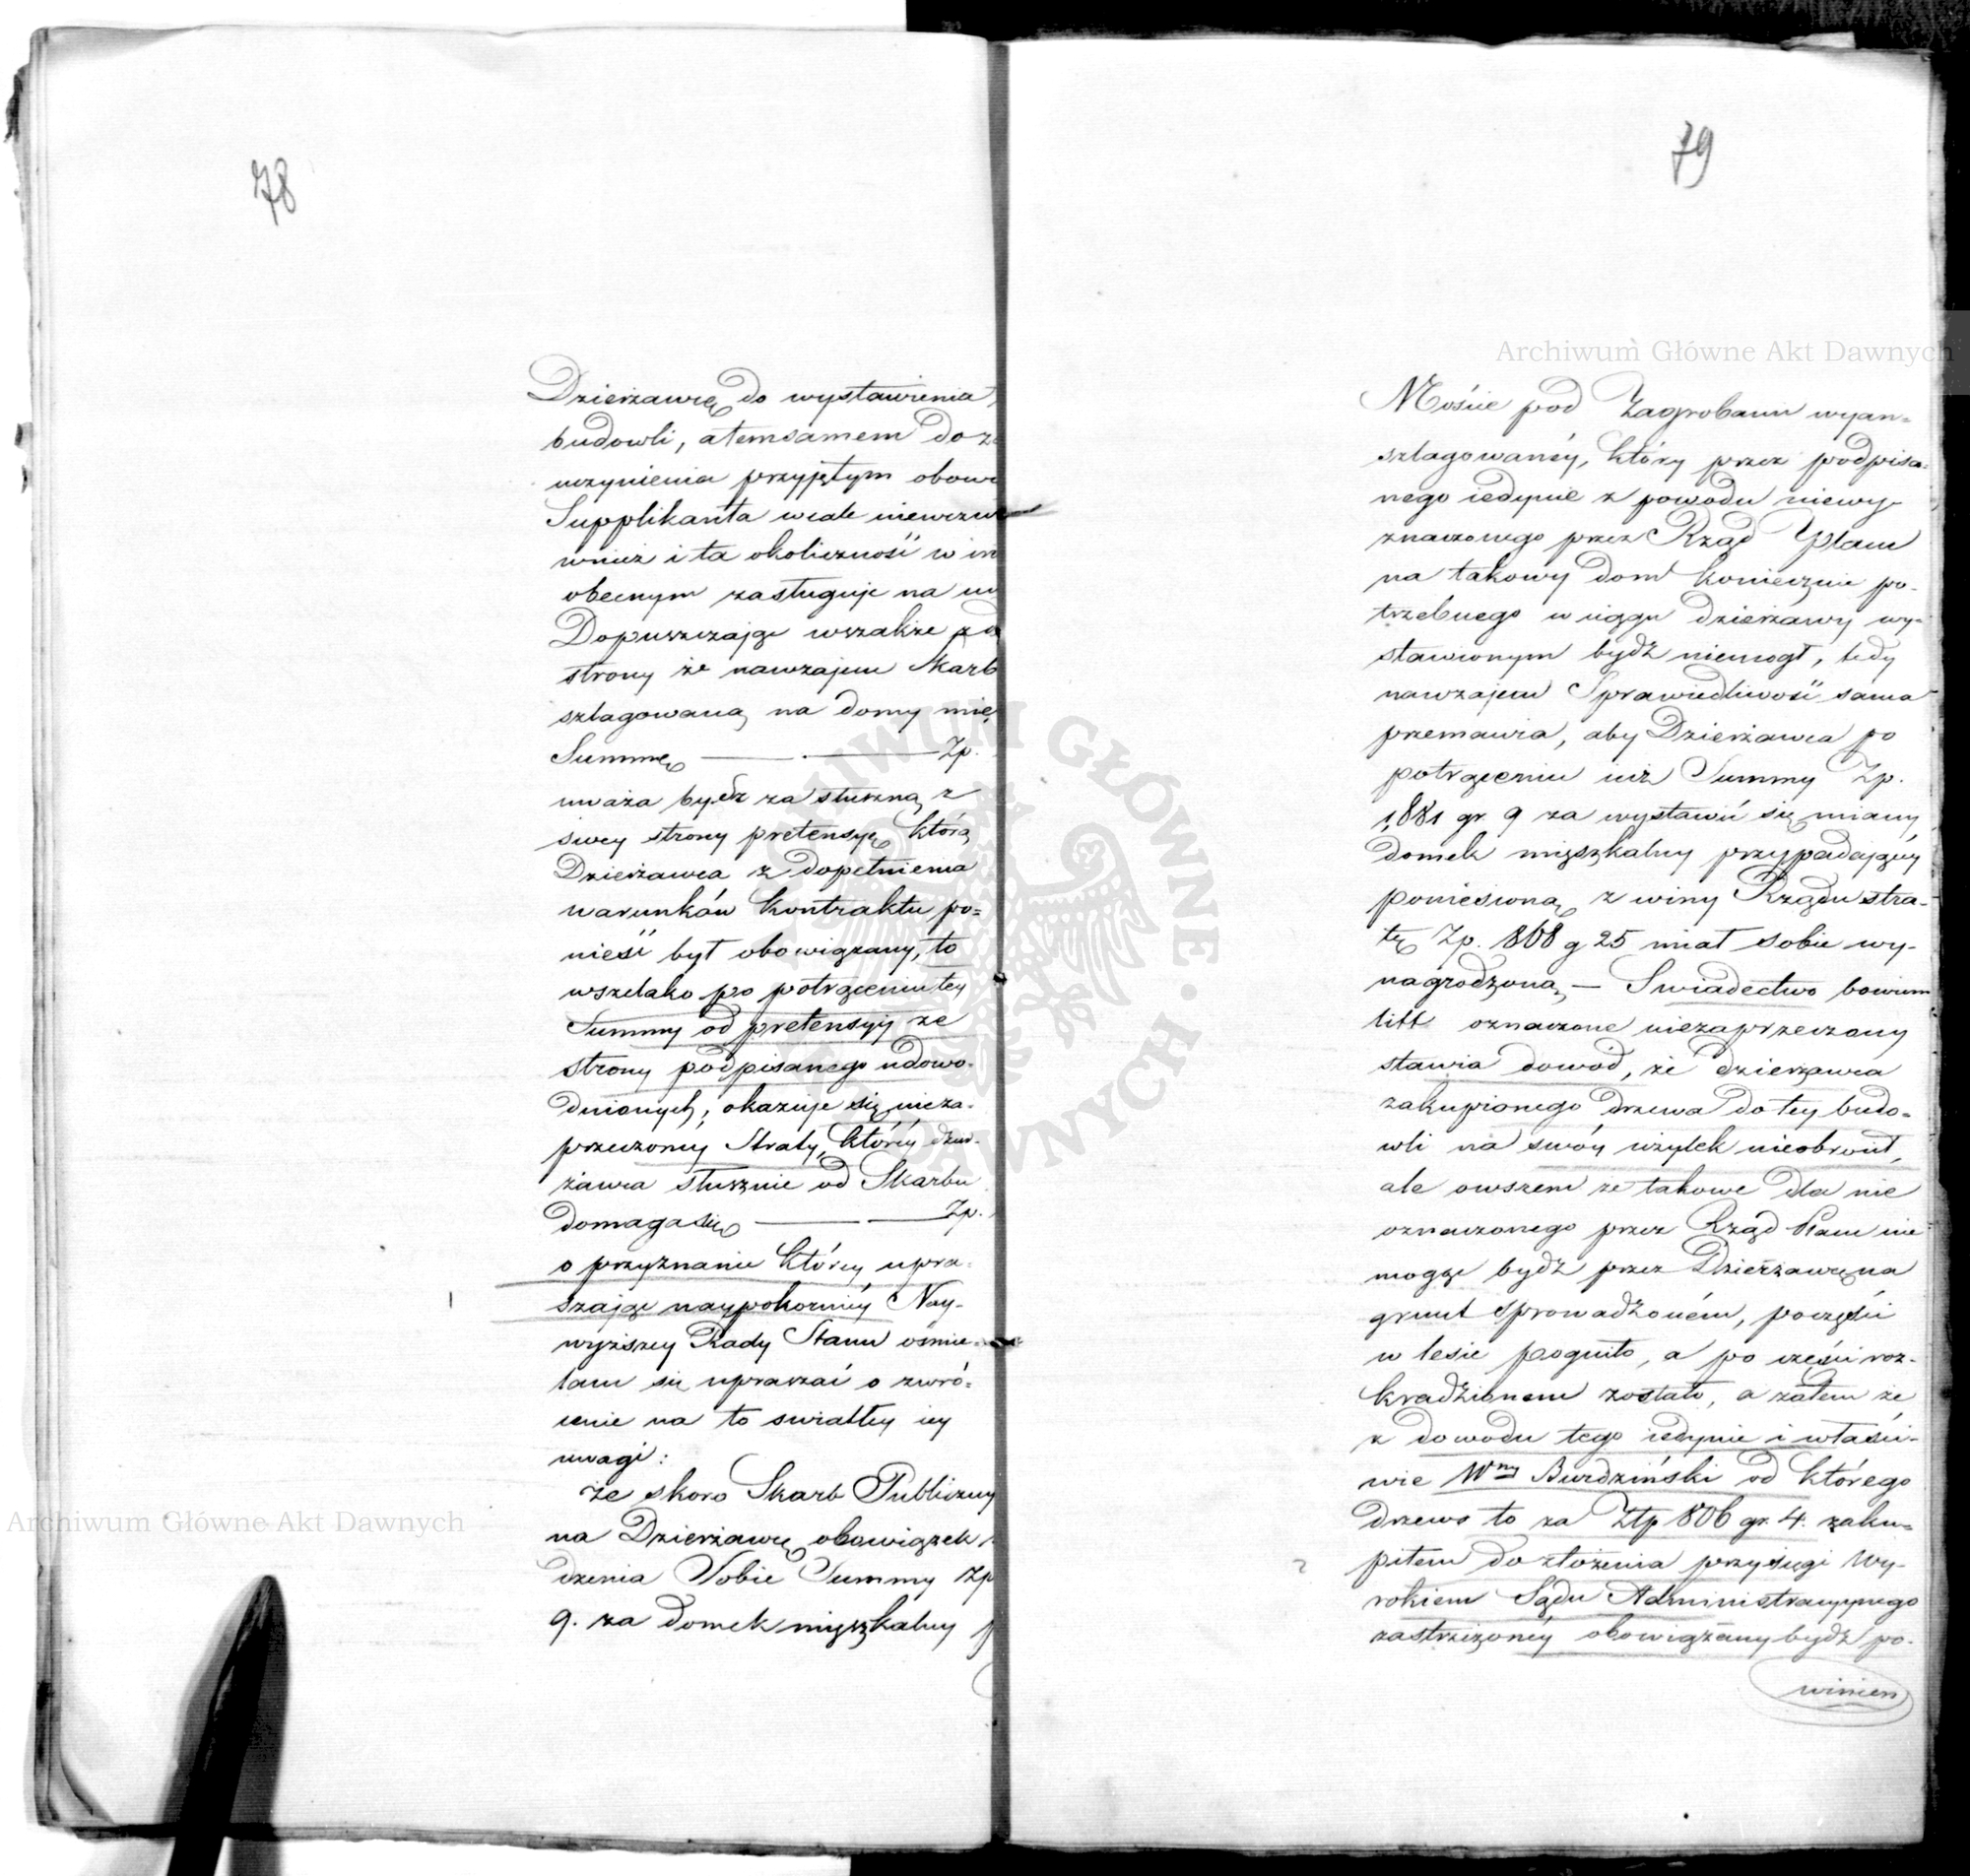 78
Dzierżawcę do wystawienia
budowli, atemsamem do
uczynienia przyjętym obow
Supplikanta wcale niewzru
wnież i ta okoliczność w in
obecnym zasługuje na uw
Dopuszczając wszakże z d
strony że nawzajem Skarb
szlagowaną na domy mie
Summę ——— · ——— Zp.
uważa bydź za słuszną z
swey strony pretensyę którą
Dzierżawca z dopełnienia
warunków kontraktu po=
nieść był obowiązany, to
wszelako po potrąceniu tey
Summy od pretensyy ze
strony podpisanego udowo-
dnionych, okazuje się nieza-
przeczoney Straty, któréy dzier-
żawca słusznie od Skarbu
domaga się ——— ——— Zp.
o przyznanie któréy upra-
szając naypokorniéy Nay-
wyższey Rady Stanu ośmie-
lam się upraszać o zwró-
cenie na to swiatłey iey
uwagi:
że skoro Skarb Publiczny
na Dzierżawcę obowiązek
dzenia Sobie Summy Zp
9. za domek mięszkalny p
79
Mościе pod Zagrobami wyan-
szlagowanéy, który przez podpisa-
nego iedynie z powodu niewy-
znaczonego przez Rząd Placu
na takowy dom koniecznie po-
trzebnego w ciągu dzierżawy wy-
stawionym bydź niemogł, tedy
nawzajem Sprawiedliwość sama
przemawia, aby Dzierżawca po
potrąceniu iuż Summy Zp.
1,881 gr. 9 za wystawić się miany
domek mięszkalny przypadaiącéy
poniesioną z winy Rządu stra-
tę Zp. 868 g 25 miał sobie wy-
nagrodzoną — Swiadectwo bowiem
litt oznaczone niezaprzeczony
stawia dowód, że dzierżawca
zakupionego drzewa do tey budo-
wli na swóy użytek nieobrócił,
ale owszem że takowe dla nie
oznaczonego przez Rząd Placu nie
mogąc bydź przez Dzierżawcę na
grunt sprowadzoném, poczęści
w lesie pogniło, a po części roz-
kradzionem zostało, a zatem że
z dowodu tego iedynie i właści-
wie Wny Burdziński od którego
drzewo to za Złp 806 gr. 4. zaku-
piłem do złożenia przysięgi Wy-
rokiem Sądu Administracyinego
zastrzeżonéy obowiązany bydź po-
winien
Archiwum Główne Akt Dawnych
Archiwum Główne Akt Dawnych